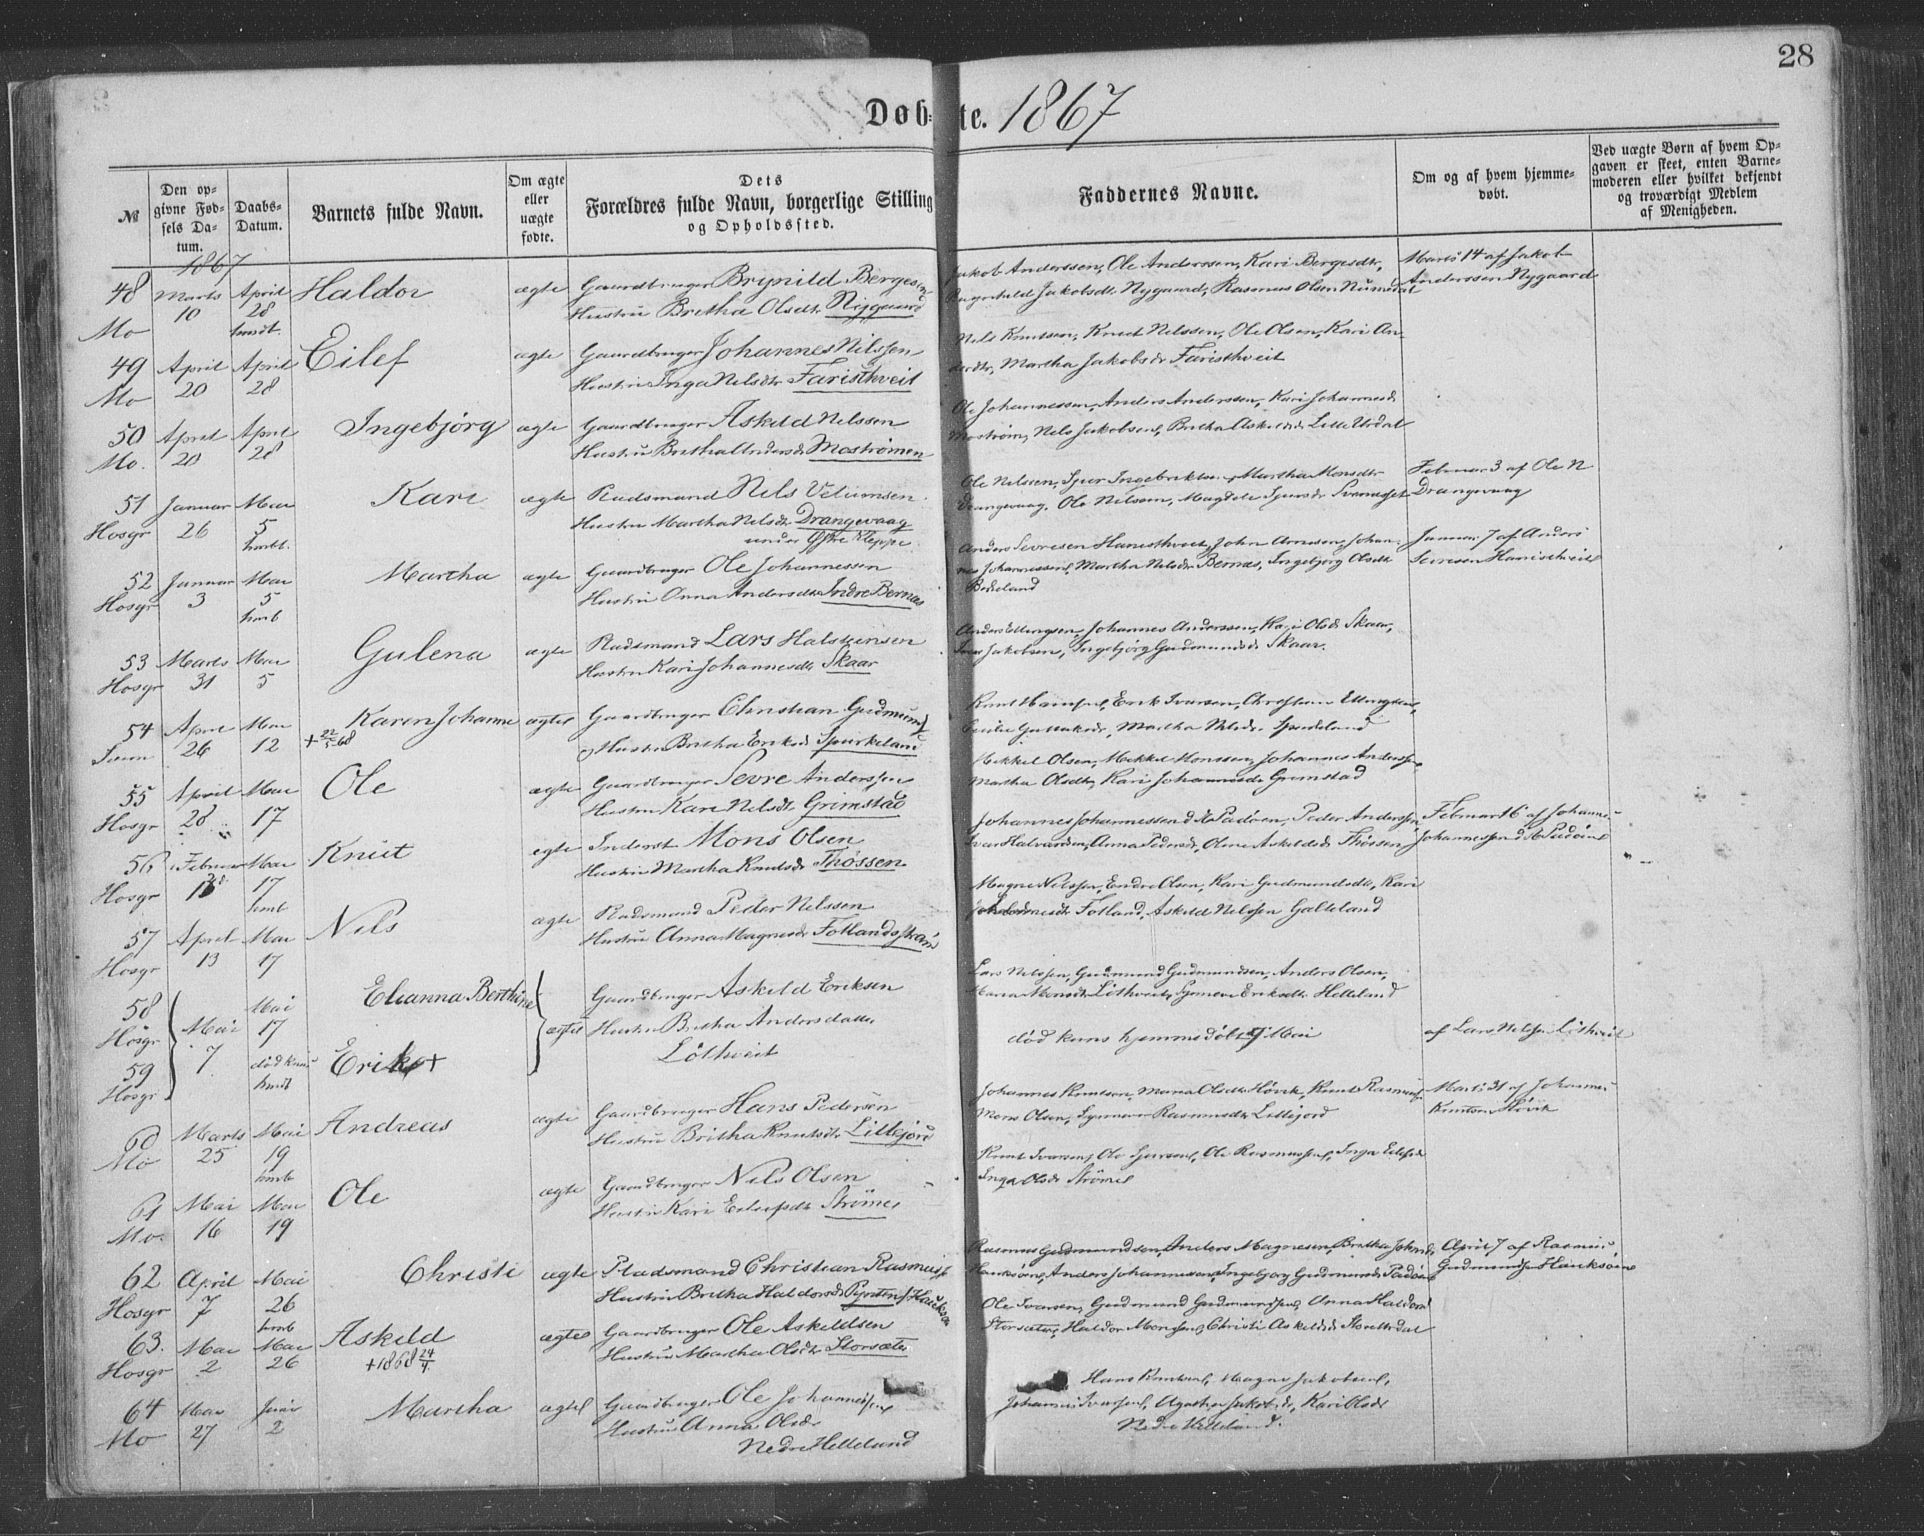 28
Døbte. 1867
№
Den opgivne Fødsels Datum.
Daabs-Datum.
Barnets fulde Navn.
Om ægte eller uægte fødte.
Dets Forældres fulde Navn, borgerlige Stilling og Opholdssted.
Faddernes Navne.
Om og af hvem hjemmedøbt.
Ved uægte Børn af hvem Opgaven er skeet, enten Barnemoderen eller hvilket bekjendt og troværdigt Medlem af Menigheden.
1867
48 Mo Marts 10 April 28 hmdt. Haldor ægte Gaardbruger Brynild Bergesen
Hustru Britha Olsdtr Nygaard
Jakob Anderssen, Ole Anderssen, Kari Bergesdtr,
Jakobsdtr Nygaard, Rasmus Olsen Numedal
Marts 14 af Jakob
Anderssen Nygaard
49 Mo April 20 April 28 Eilef ægte Gaardbruger Johannes Nilssen
Hustru Inga Nelsdtr Faristhveit
Nils Knutssen, Knut Nilssen, Ole Olsen, Kari An-
dersdtr, Martha Jakobsdr Faristhveit
50 Mo. April 20 April 28 Ingebjörg ægte Gaardbruger Askild Nelssen
Hustru Britha Andersdr Moströmen
Ole Johannessen, Anders Anderssen, Kari Johannesdr
Moström, Nils Jakobsen, Britha Askildsdr Lille Urdal
51 Hosgr Januar 26 Mai 5 hmbt. Kari ægte Pladsmand Nils Velumsen
Hustru Martha Nilsdtr Drangevaag
under Østre Kleppe
Ole Nilssen, Sjur Ingebriktsen, Martha Monsdtr
Drangevaag, Ole Nilssen, Magdele Sjursdr
Februar 3 af Ole N
Drangevaag
52 Hosgr Januar 3 Mai 5 hmb Martha ægte Gaardbruger Ole Johannessen
Hustru Anna Andersdtr Indre Bernæs
Anders Sevresen Haristhveit, John Arnesen, Johan-
nes Johannessen, Martha Nilsdr Bernæs, Ingebjörg Olsdtr
Januar 7 af Anders
Sevresen Haristhveit
53 Hosgr Marts 31 Mai 5 Gulena ægte Pladsmand Lars Halstensen
Hustru Kari Johannesdtr Skaar
Anders Ellingsen, Johannes Anderssen, Olsdr Skaar,
Jakobsen, Ingebjörg Gudmundsdr Skaar.
54 April 26 Mai 12 Karen Johanne + 22/5-68 ægtel Gaardbruger Christian Gudmunds
Hustru Britha Eriksdr Spirkeland
Knut Hansen, Erik Ivarsen, Christian Ellingsen,
Martha Nilsdr
55 Hosgr April 28 Mai 17 Ole ægte Gaardbruger Sevre Anderssen
Hustru Kari Nilsdtr Grimstad
Mikkel Olsen, Mikkel Monssen, Johannes Anderssen,
Martha Olsdtr, Kari Johannesdr Grimstad
56 Hosgr Februar 13 Mai 17 hmb Knut ægte Inderst Mons Olsen
Hustru Martha Knutsdr Thössen
Johannes Johannessen Padöen, Peder Anderssen
Ivar Halvardsen, Anna Pedersdr, Oline Askildsdr Thössen
Februar 16 af Johannes
Johannessen Padöen
57 Hosgr April 13 Mai 17 Nils ægte Pladsmand Peder Nelssen
Hustru Anna Magnesdr Fotlandsskar
Magne Nilssen, Endre Olsen, Kari Gudmundsdtr, Kari
Johannesdtr Fotland, Askild Nelssen Galteland
58 Hosgr Mai 7 Mai 17 Elianna Berthine ægtel Gaardbruger Askild Eriksen
Hustru Britha Andersdatter
Löthveit
Lars Nelssen, Gudmund Gudmundsen, Anders Olsen,
Maria Monsdtr Löthveit, Synneve Eriksdtr Helleland
59 Hosgr død kun hmdt Erik +
død kuns hjemmedöbt 9 Mai
af Lars Nelssen Löthveit
60 Mo Marts 25 Mai 19 hmb Andreas ægte Gaardbruger Hans Pedersen
Hustru Britha Knutsdtr Lillejord
Johannes Knutsen, Maria Olsdtr Hövik, Knut Rasmuss.
Mons Olsen, Synneve Rasmusdtr Lillejord
Marts 31 af Johannes
Knutsen Hövik
61 Mo. Mai 16 Mai 19 Ole ægte Gaardbruger Nils Olsen
Hustru Kari Eilefsdtr Strömen
Knut Ivarsen, Ole Sjursen, Ole Rasmussen, Inga Eilefsdr
Inga Olsdr Strömen
62 Hosgr April 7 Mai 26 hmb Christi ægte Pladsmand Christian Rasmuss
Hustru Britha Haldorsdr Pynten
Rasmus Gudmundsen, Anders Magnesen, Britha
Anders Johannessen, Ingebjorg Gudmundsdr Padöen
April 7 af Rasmus
Gudmunds Hauksöen
63. Hosgr Mai 2 Mai 26 Askild + 1868 24/4. ægtel Gaardbruger Ole Askildsen
Hustru Martha Olsdtr Storsæter
Ole Ivarsen, Gudmund Gudmundsen, Anna Haldorsd
Storsæter, Haldor Monssen, Christi Askildsdr
64 Mo Mai 27 Juni 2 Martha ægtel Gaardbruger Ole Johannessen
Hustru Anna Olsdr
Nedre Helleland
Hans Knutsen, Magne Jakobsen,
Johannes Ivarsen, Agatha Jakobsdr, Kari Olsdr
Nedre Helleland.